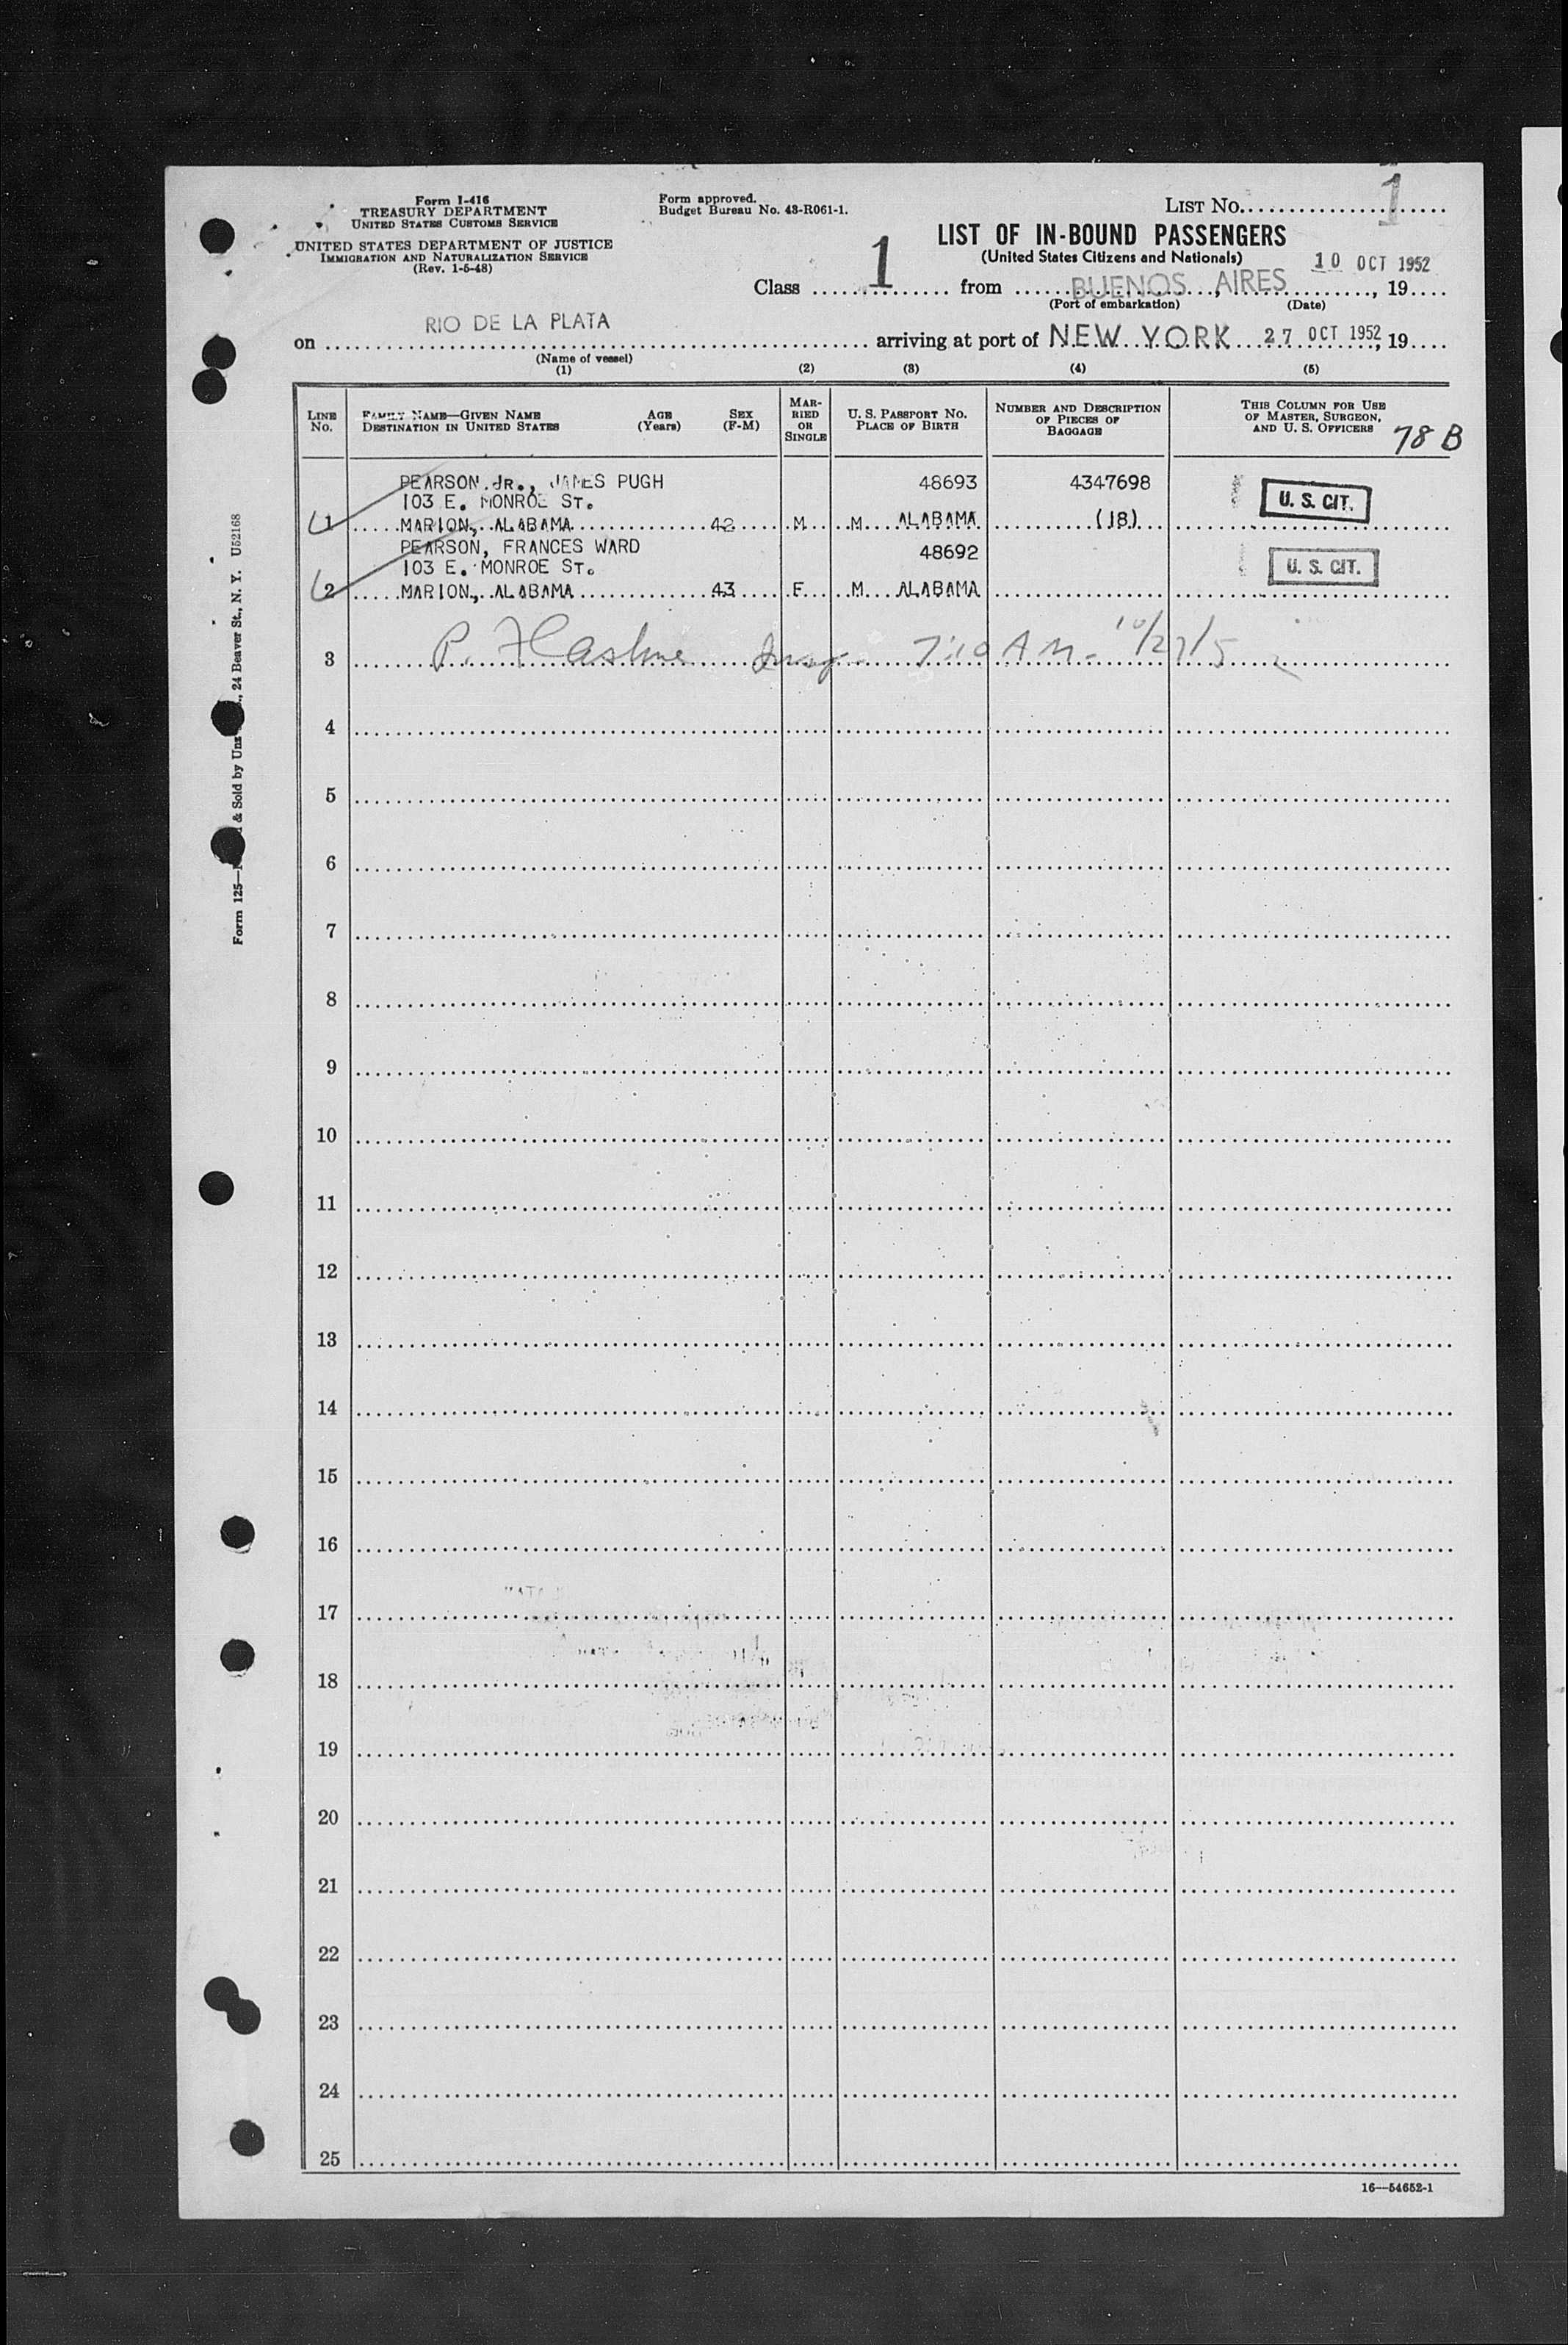 Form I-416
TREASURY DEPARTMENT
UNITED STATES CUSTOMS SERVICE
UNITED STATES DEPARTMENT OF JUSTICE
IMMIGRATION AND NATURALIZATION SERVICE
(Rev. 1-5-48)
Form approved.
Budget Bureau No. 43-R061-1.
LIST No. 1
LIST OF IN-BOUND PASSENGERS
(United States Citizens and Nationals)
10 OCT 1952
Class 1 from BUENOS AIRES, 19
(Port of embarkation) (Date)
RIO DE LA PLATA
on arriving at port of NEW YORK 27 OCT 1952, 19
(Name of vessel)
(1) (2) (3) (4) (5)
LINE No. FAMILY NAME—GIVEN NAME DESTINATION IN UNITED STATES AGE (Years) SEX (F-M) MARRIED OR SINGLE U. S. PASSPORT NO. PLACE OF BIRTH NUMBER AND DESCRIPTION OF PIECES OF BAGGAGE THIS COLUMN FOR USE OF MASTER, SURGEON, AND U. S. OFFICERS 78 B
PEARSON Jr., JAMES PUGH 48693 4347698
103 E. MONROE ST. U. S. CIT.
1 MARION, ALABAMA 42 M M ALABAMA (18)
PEARSON, FRANCES WARD 48692
103 E. MONROE ST. U. S. CIT.
2 MARION, ALABAMA 43 F M ALABAMA
3 7:10 A M. 10/27/5
4
5
6
7
8
9
10
11
12
13
14
15
16
17
18
19
20
21
22
23
24
25
16—54652-1
Form 125— & Sold by Unz , 24 Beaver St., N. Y. U52168